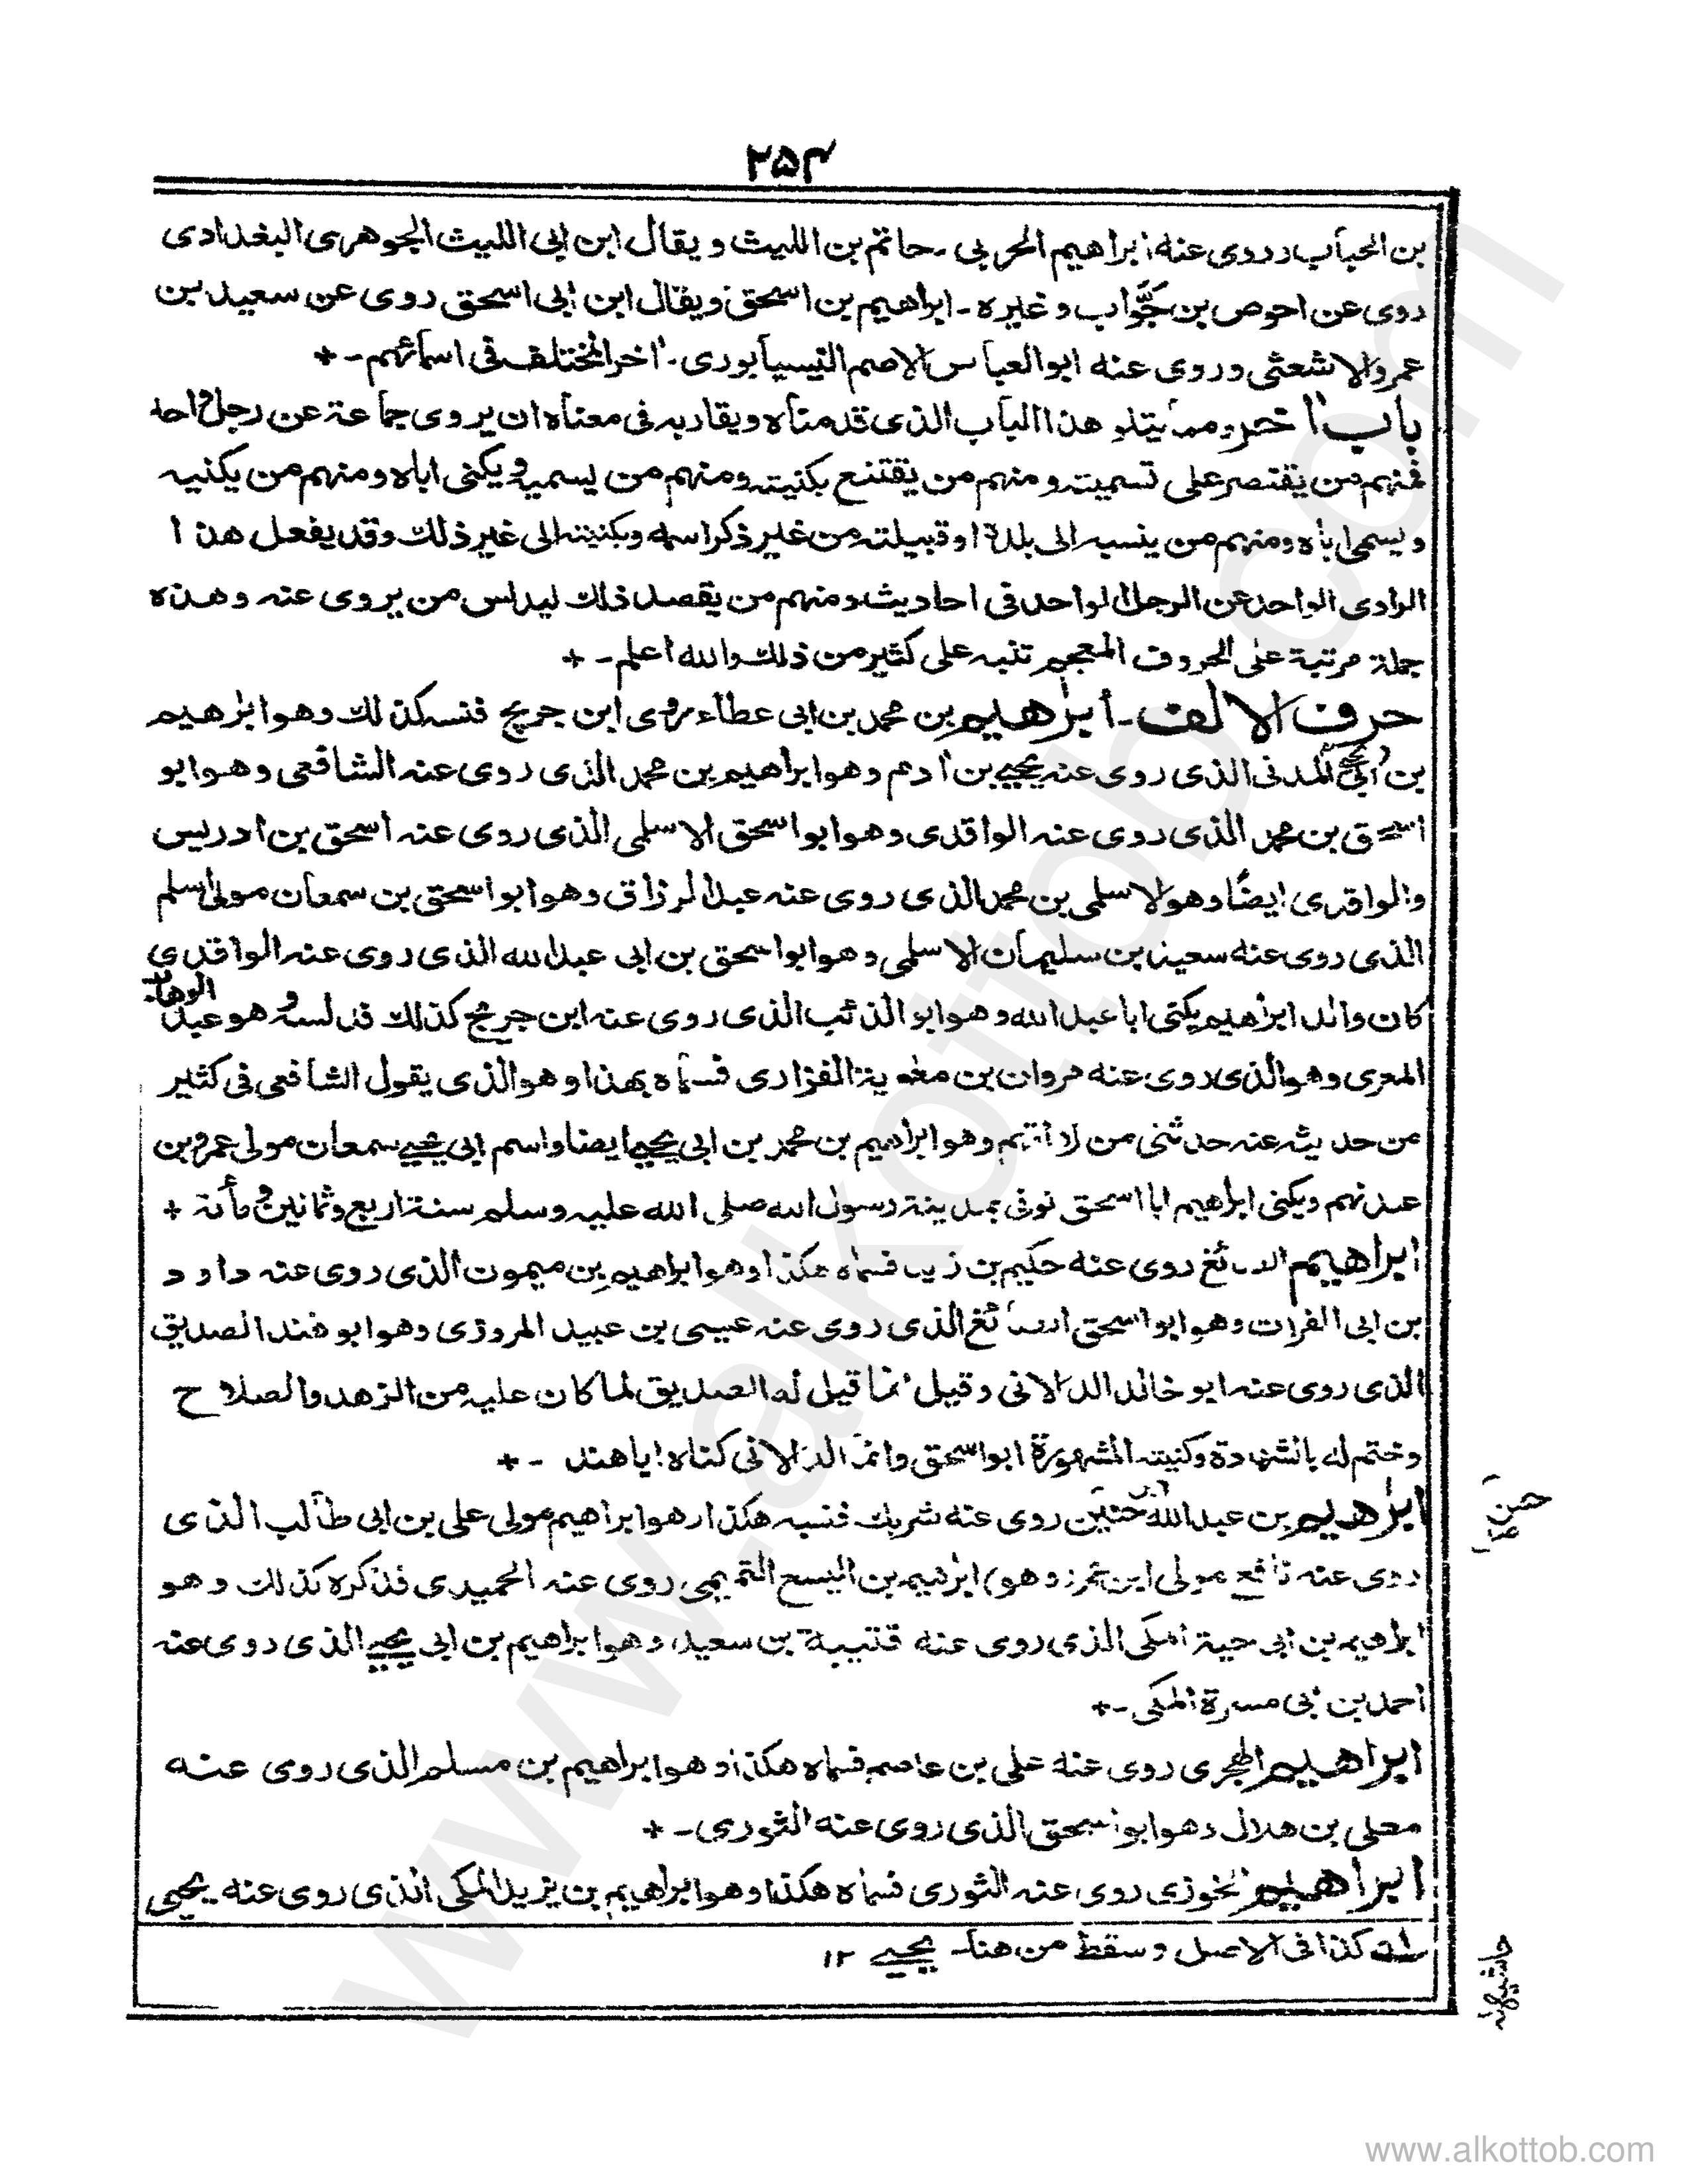 ۲۵۴
بن الحباب وروى عنه ابراهيم الحربي ۔ حاتم بن الليث ويقال ابن ابى الليث الجوهرى البغدادى
روى عن احوص بن جوّاب وغيره ۔ ابراهيم بن اسحق ويقال ابن ابى اسحق روى عن سعيد بن
عمرو الاشعثى وروى عنه ابوالعباس الاصم النيسابورى ۔ اخر المختلف فى اسمائهم ۔ +
باب اخر مما يتلو هذا الباب الذى قدمناه ويقاربه فى معناه ان يروى جماعة عن رجل واحد
فمنهم من يقتصر على تسميته ومنهم من يقتنع بكنيته ومنهم من يسميه ويكنى اباه ومنهم من يكنيه
ويسمى اباه ومنهم من ينسبه الى بلدة او قبيلته من غير ذكر اسمه وبكنيته الى غير ذلك وقد يفعل هذا
الراوى الواحد عن الرجل الواحد فى احاديث ومنهم من يقصد ذلك ليدلس من يروى عنه وهذه
جملة مرتبة على الحروف المعجم تنبه على كثير من ذلك والله اعلم ۔ +
حرف الالف ۔ ابرٰهيم بن محمد بن ابى عطاء روى ابن جريج فنسبه كذلك وهو ابرٰهيم
بن ابى يحيى المدنى الذى روى عنه يحيى بن ادم وهو ابراهيم بن محمد الذى روى عنه الشافعى وهو ابو
اسحق بن محمد الذى روى عنه الواقدى وهو ابو اسحق الاسلمى الذى روى عنه اسحق بن ادريس
والواقدى ايضًا وهو الاسلمى بن محمد الذى روى عنه عبد الرزاق وهو ابو اسحق بن سمعان مولى اسلم
الذى روى عنه سعيد بن سليمان الاسلمى وهو ابو اسحق بن ابى عبد الله الذى روى عنه الواقدى
كان والد ابرٰهيم يكنى ابا عبد الله وهو ابو الذئب الذى روى عنه ابن جريج كذلك فدلسه وهو عبد الوهاب
المعرى وهو الذى روى عنه مروان بن معٰوية الفزارى فسماه بهذا وهو الذى يقول الشافعى فى كثير
من حديثه عنه حدثنى من لا اتهم وهو ابراهيم بن محمد بن ابى يحيى ايضا واسم ابى يحيى سمعان مولى عمرو بن
عبد نهم ويكنى ابراهيم ابا اسحق توفى بمدينة رسول الله صلى الله عليه وسلم سنة اربع وثمانين ومأئة +
ابراهيم الصائغ روى عنه حكيم بن زيد فسماه هكذا وهو ابراهيم بن ميمون الذى روى عنه داود
بن ابى الفرات وهو ابو اسحق الصائغ الذى روى عنه عيسى بن عبيد المروزى وهو ابو هند الصديق
الذى روى عنه ابو خالد الدالانى وقيل انما قيل له الصديق لما كان عليه من الزهد والصلاح
وختم له بالشهادة وكنيته المشهورة ابو اسحق وانما الدالانى كناه اباهند ۔ +
ابرٰهيم بن عبد الله بن حنين روى عنه شريك فنسبه هكذا وهو ابراهيم مولى على بن ابى طالب الذى
روى عنه نافع مولى ابن عمر وهو) ابرٰهيم بن اليسع التميمى روى عنه الحميدى فذكره كذلك وهو
ابراهيم بن ابى حية المكى الذى روى عنه قتيبة بن سعيد وهو ابراهيم بن ابى يحيى الذى روى عنه
احمد بن ابى مسرة المكى ۔ +
ابراهيم الهجرى روى عنه على بن عاصم فسماه هكذا وهو ابراهيم بن مسلم الذى روى عنه
معلى بن هلال وهو ابو اسحق الذى روى عنه الثورى ۔ +
ابراهيم الخوزى روى عنه الثورى فسماه هكذا وهو ابراهيم بن يزيد المكى الذى روى عنه يحيى
كذا فى الاصل وسقط من هنا ۔ يحيى ۱۲
www.alkottob.com
www.alkottob.com